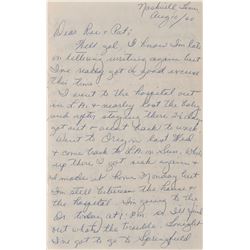 Nashville Tenn
Aug 10/60
Dear Rae & Pat:
Well gal, I know I'm late
on letter writing again but
I've really got a good excuse
this time.
I went to the hospital out
in L.A. & nearly lost the baby
and after staying there 3 days
got out & went back to work
Went to Oreg.
& come back to L.A. While
up there I got sick again &
I made it home Monday but
I'm still between the house &
the hospital. I'm going to the
Dr today at 1 PM so I'll find
out what's the trouble. Tonight
I've got to go to Springfield